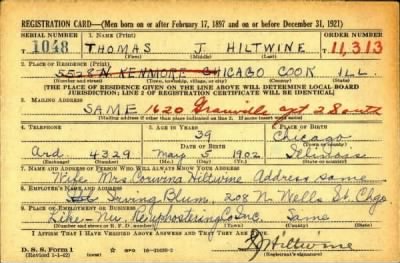 REGISTRATION CARD—(Men born on or after February 17, 1897 and on or before December 31, 1921)
SERIAL NUMBER 1. NAME (Print) ORDER NUMBER
1048 THOMAS J HILTWINE 11,313
2. PLACE OF RESIDENCE (Print)
5528 N. KENMORE CHICAGO COOK ILL.
(Number and street) (Town, township, village, or city) (County) (State)
[THE PLACE OF RESIDENCE GIVEN ON THE LINE ABOVE WILL DETERMINE LOCAL BOARD
JURISDICTION; LINE 2 OF REGISTRATION CERTIFICATE WILL BE IDENTICAL]
3. MAILING ADDRESS
SAME 1620 Granville apt 2 South
[Mailing address if other than place indicated on line 2. If same insert word same]
4. TELEPHONE 5. AGE IN YEARS 6. PLACE OF BIRTH
39 Chicago
DATE OF BIRTH (Town or county)
Ard 4329 May 5 1902 Illinois
(Exchange) (Number) (Mo.) (Day) (Yr.) (State or country)
7. NAME AND ADDRESS OF PERSON WHO WILL ALWAYS KNOW YOUR ADDRESS
Wife Mrs Hiltwine Address same
8. EMPLOYER'S NAME AND ADDRESS
Irving Blum, 208 N. Wells St. Chgo
9. PLACE OF EMPLOYMENT OR BUSINESS
Like-Nu Co Inc. Same
(Address of place of employment or business) (Number and street or R. F. D. number) (Town) (County) (State)
I AFFIRM THAT I HAVE VERIFIED ABOVE ANSWERS AND THAT THEY ARE TRUE.
D. S. S. Form 1
Hiltwine
(Registrant's signature)